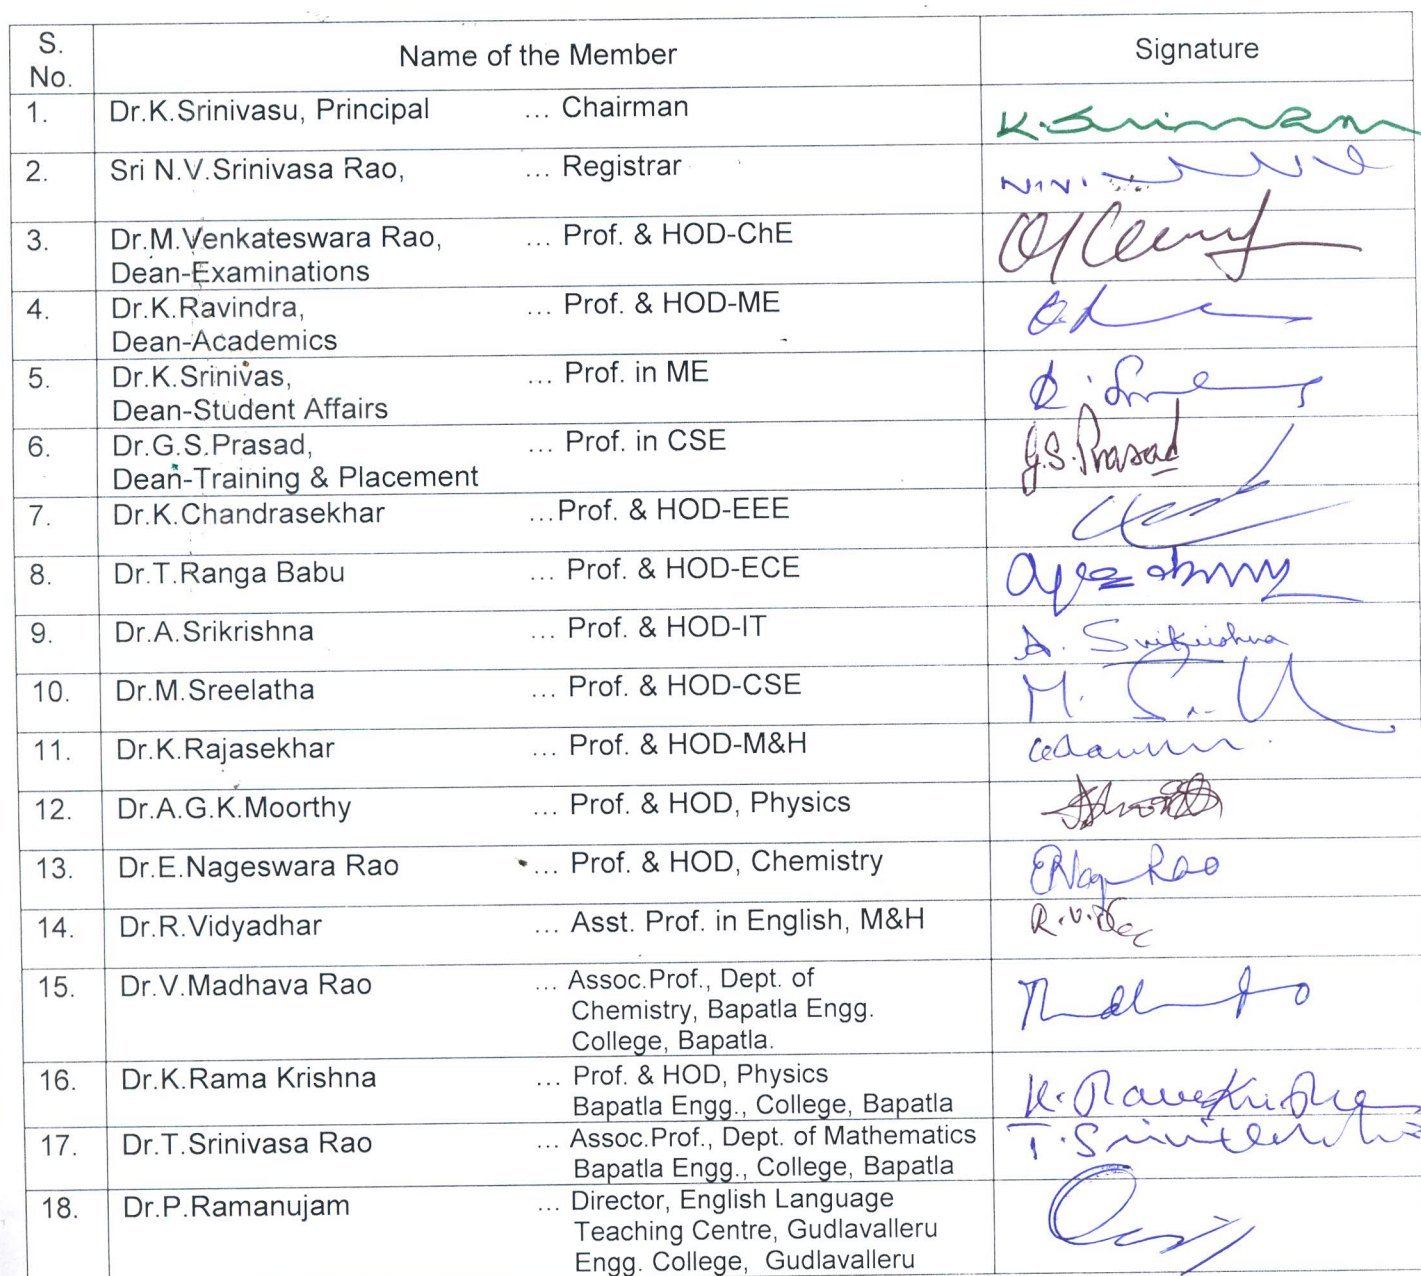 S. No. Name of the Member Signature
1. Dr.K.Srinivasu, Principal ... Chairman
2. Sri N.V.Srinivasa Rao, ... Registrar
3. Dr.M.Venkateswara Rao, ... Prof. & HOD-ChE
Dean-Examinations
4. Dr.K.Ravindra, ... Prof. & HOD-ME
Dean-Academics
5. Dr.K.Srinivas, ... Prof. in ME
Dean-Student Affairs
6. Dr.G.S.Prasad, ... Prof. in CSE G.S.Prasad
Dean-Training & Placement
7. Dr.K.Chandrasekhar ...Prof. & HOD-EEE
8. Dr.T.Ranga Babu ... Prof. & HOD-ECE
9. Dr.A.Srikrishna ... Prof. & HOD-IT A. Srikrishna
10. Dr.M.Sreelatha ... Prof. & HOD-CSE
11. Dr.K.Rajasekhar ... Prof. & HOD-M&H
12. Dr.A.G.K.Moorthy ... Prof. & HOD, Physics
13. Dr.E.Nageswara Rao ... Prof. & HOD, Chemistry
14. Dr.R.Vidyadhar ... Asst. Prof. in English, M&H
15. Dr.V.Madhava Rao ... Assoc.Prof., Dept. of
Chemistry, Bapatla Engg.
College, Bapatla.
16. Dr.K.Rama Krishna ... Prof. & HOD, Physics
Bapatla Engg., College, Bapatla
17. Dr.T.Srinivasa Rao ... Assoc.Prof., Dept. of Mathematics
Bapatla Engg., College, Bapatla
18. Dr.P.Ramanujam ... Director, English Language
Teaching Centre, Gudlavalleru
Engg. College, Gudlavalleru